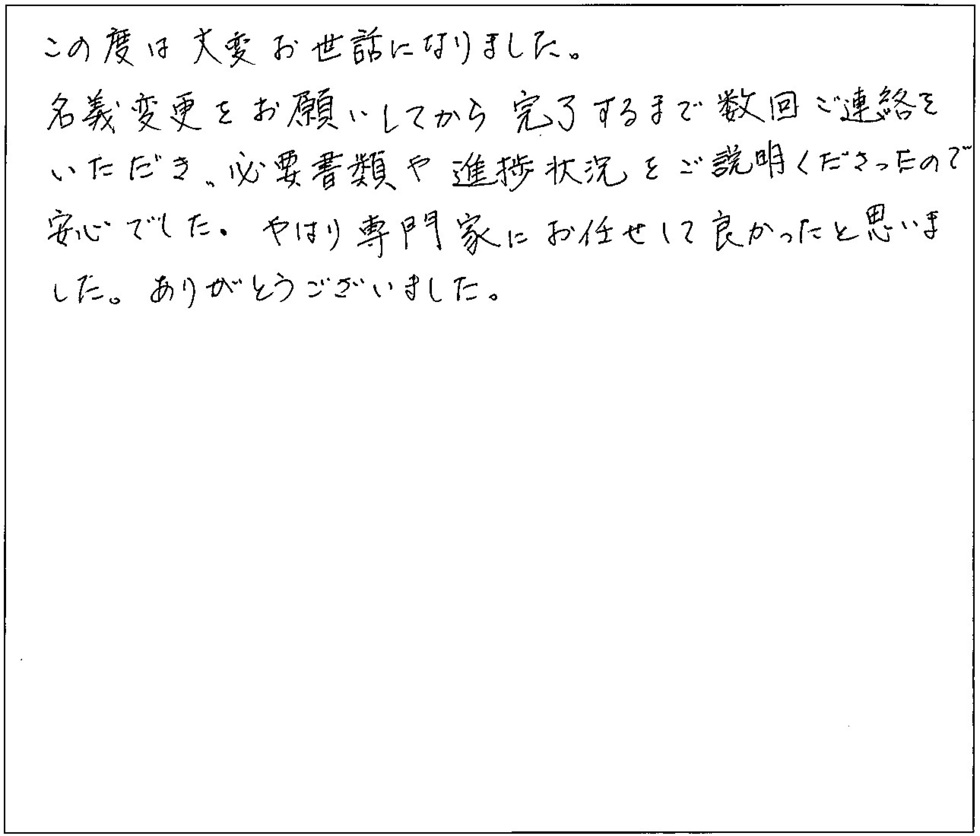 この度は大変お世話になりました。
名義変更をお願いしてから完了するまで数回ご連絡を
いただき、必要書類や進捗状況をご説明くださったので
安心でした。やはり専門家にお任せして良かったと思いま
した。ありがとうございました。